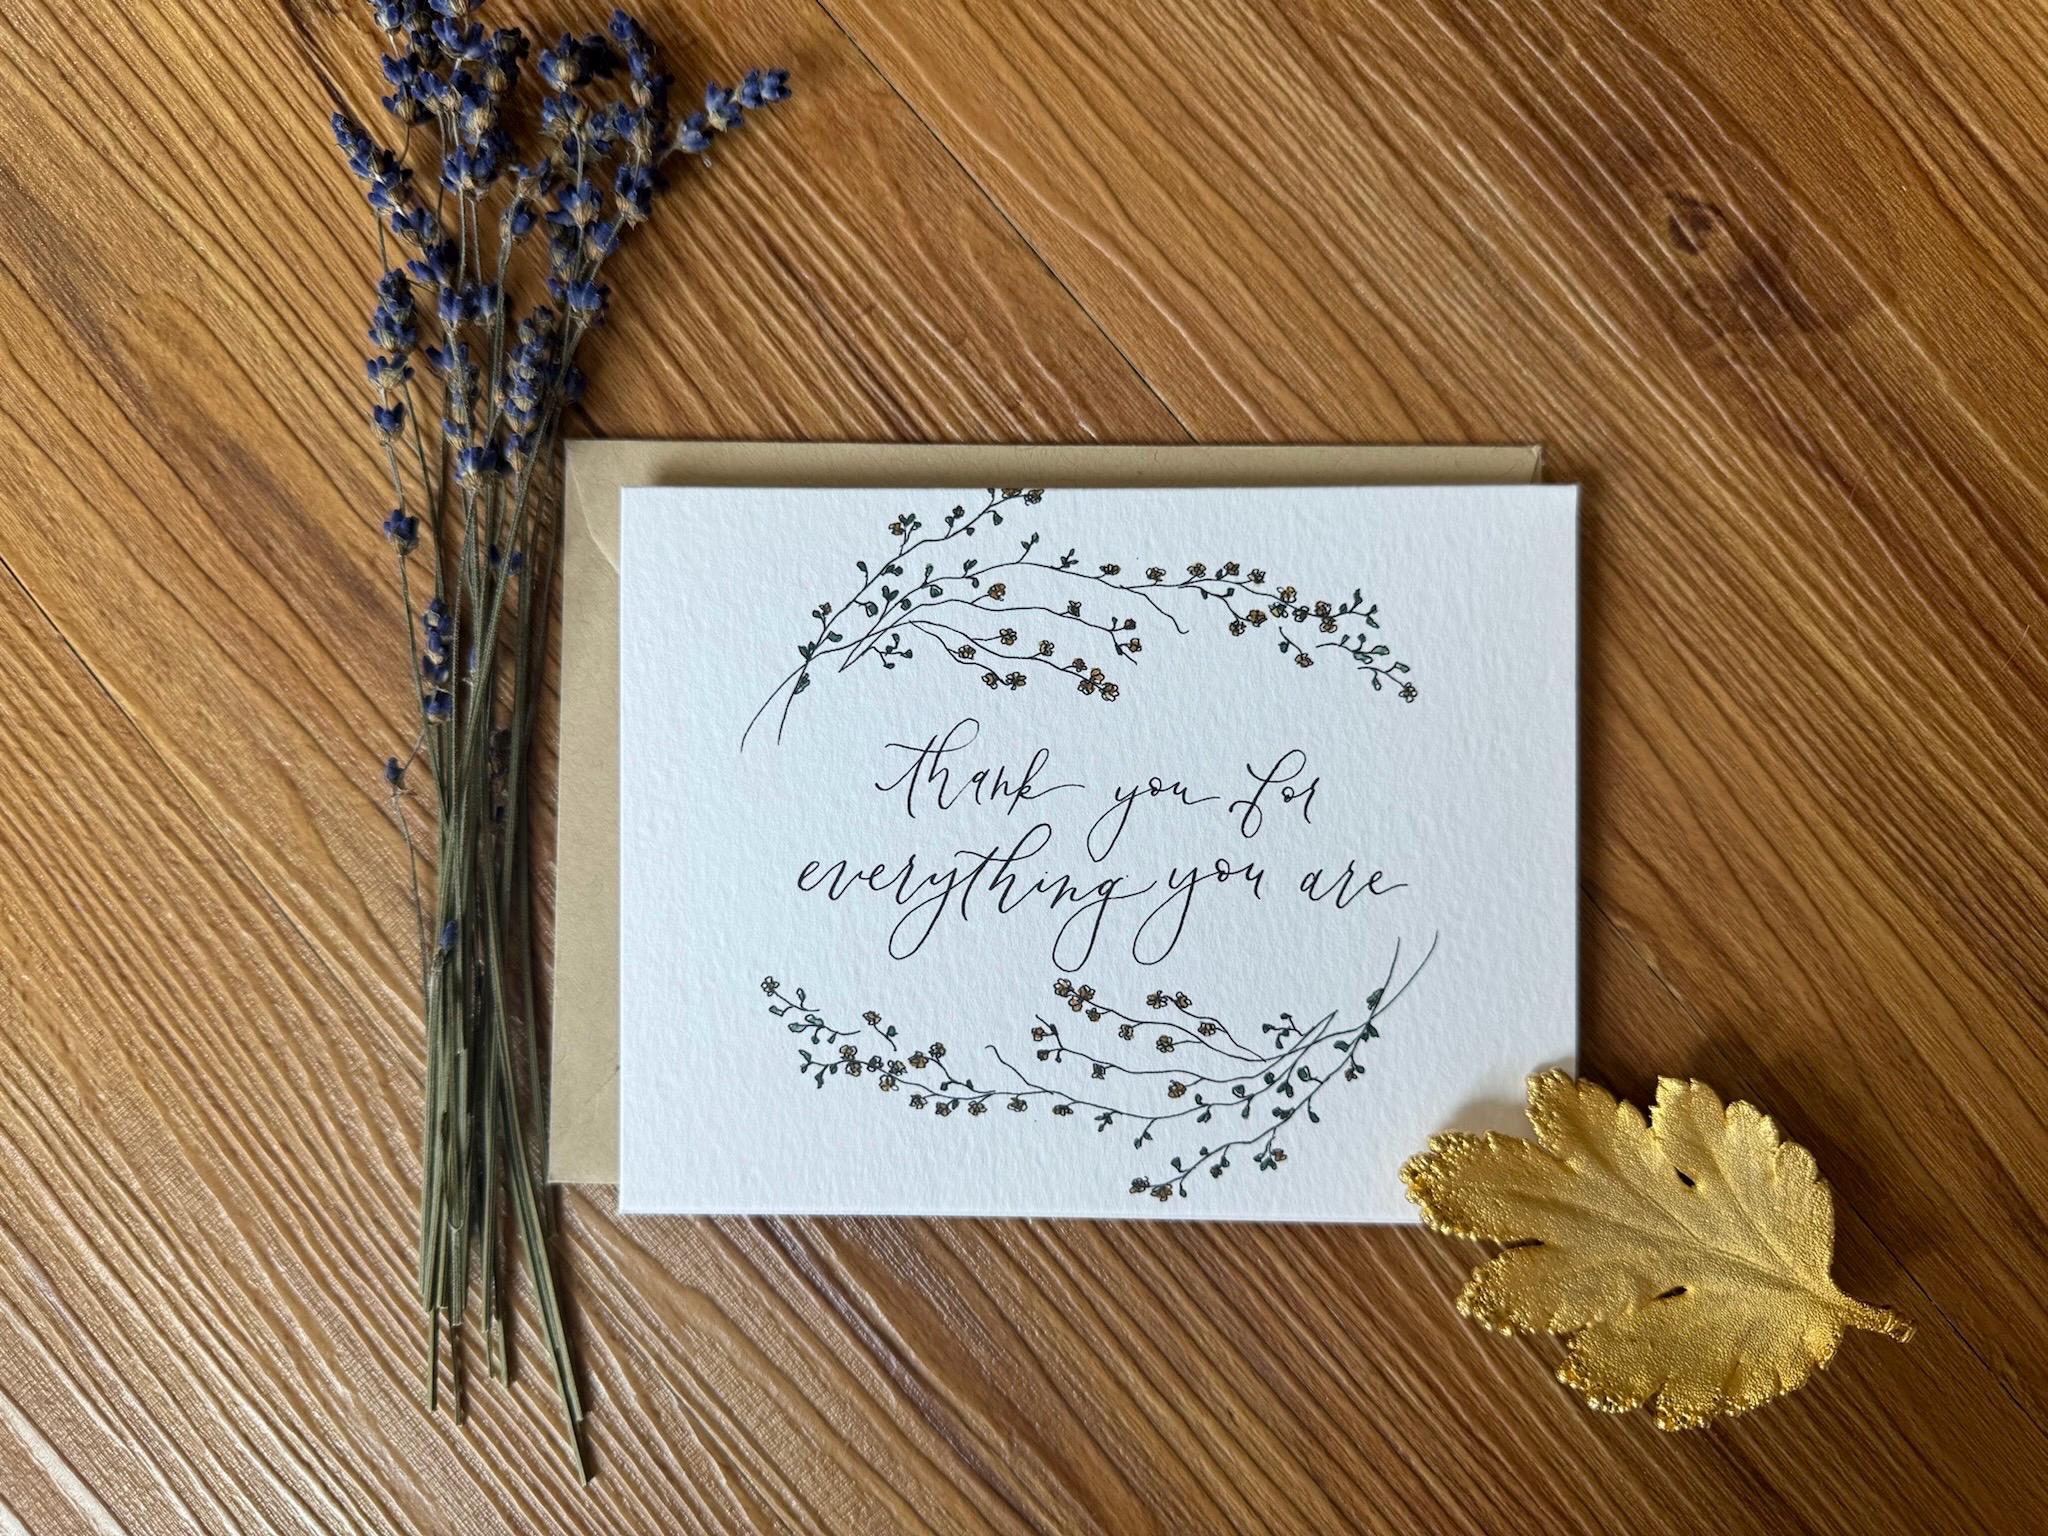 thank you for
everything you are